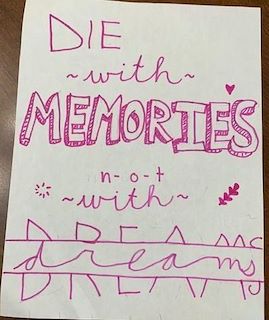 DIE
~with~
MEMORIES
n-o-t
~with~
DREAMS
dreams